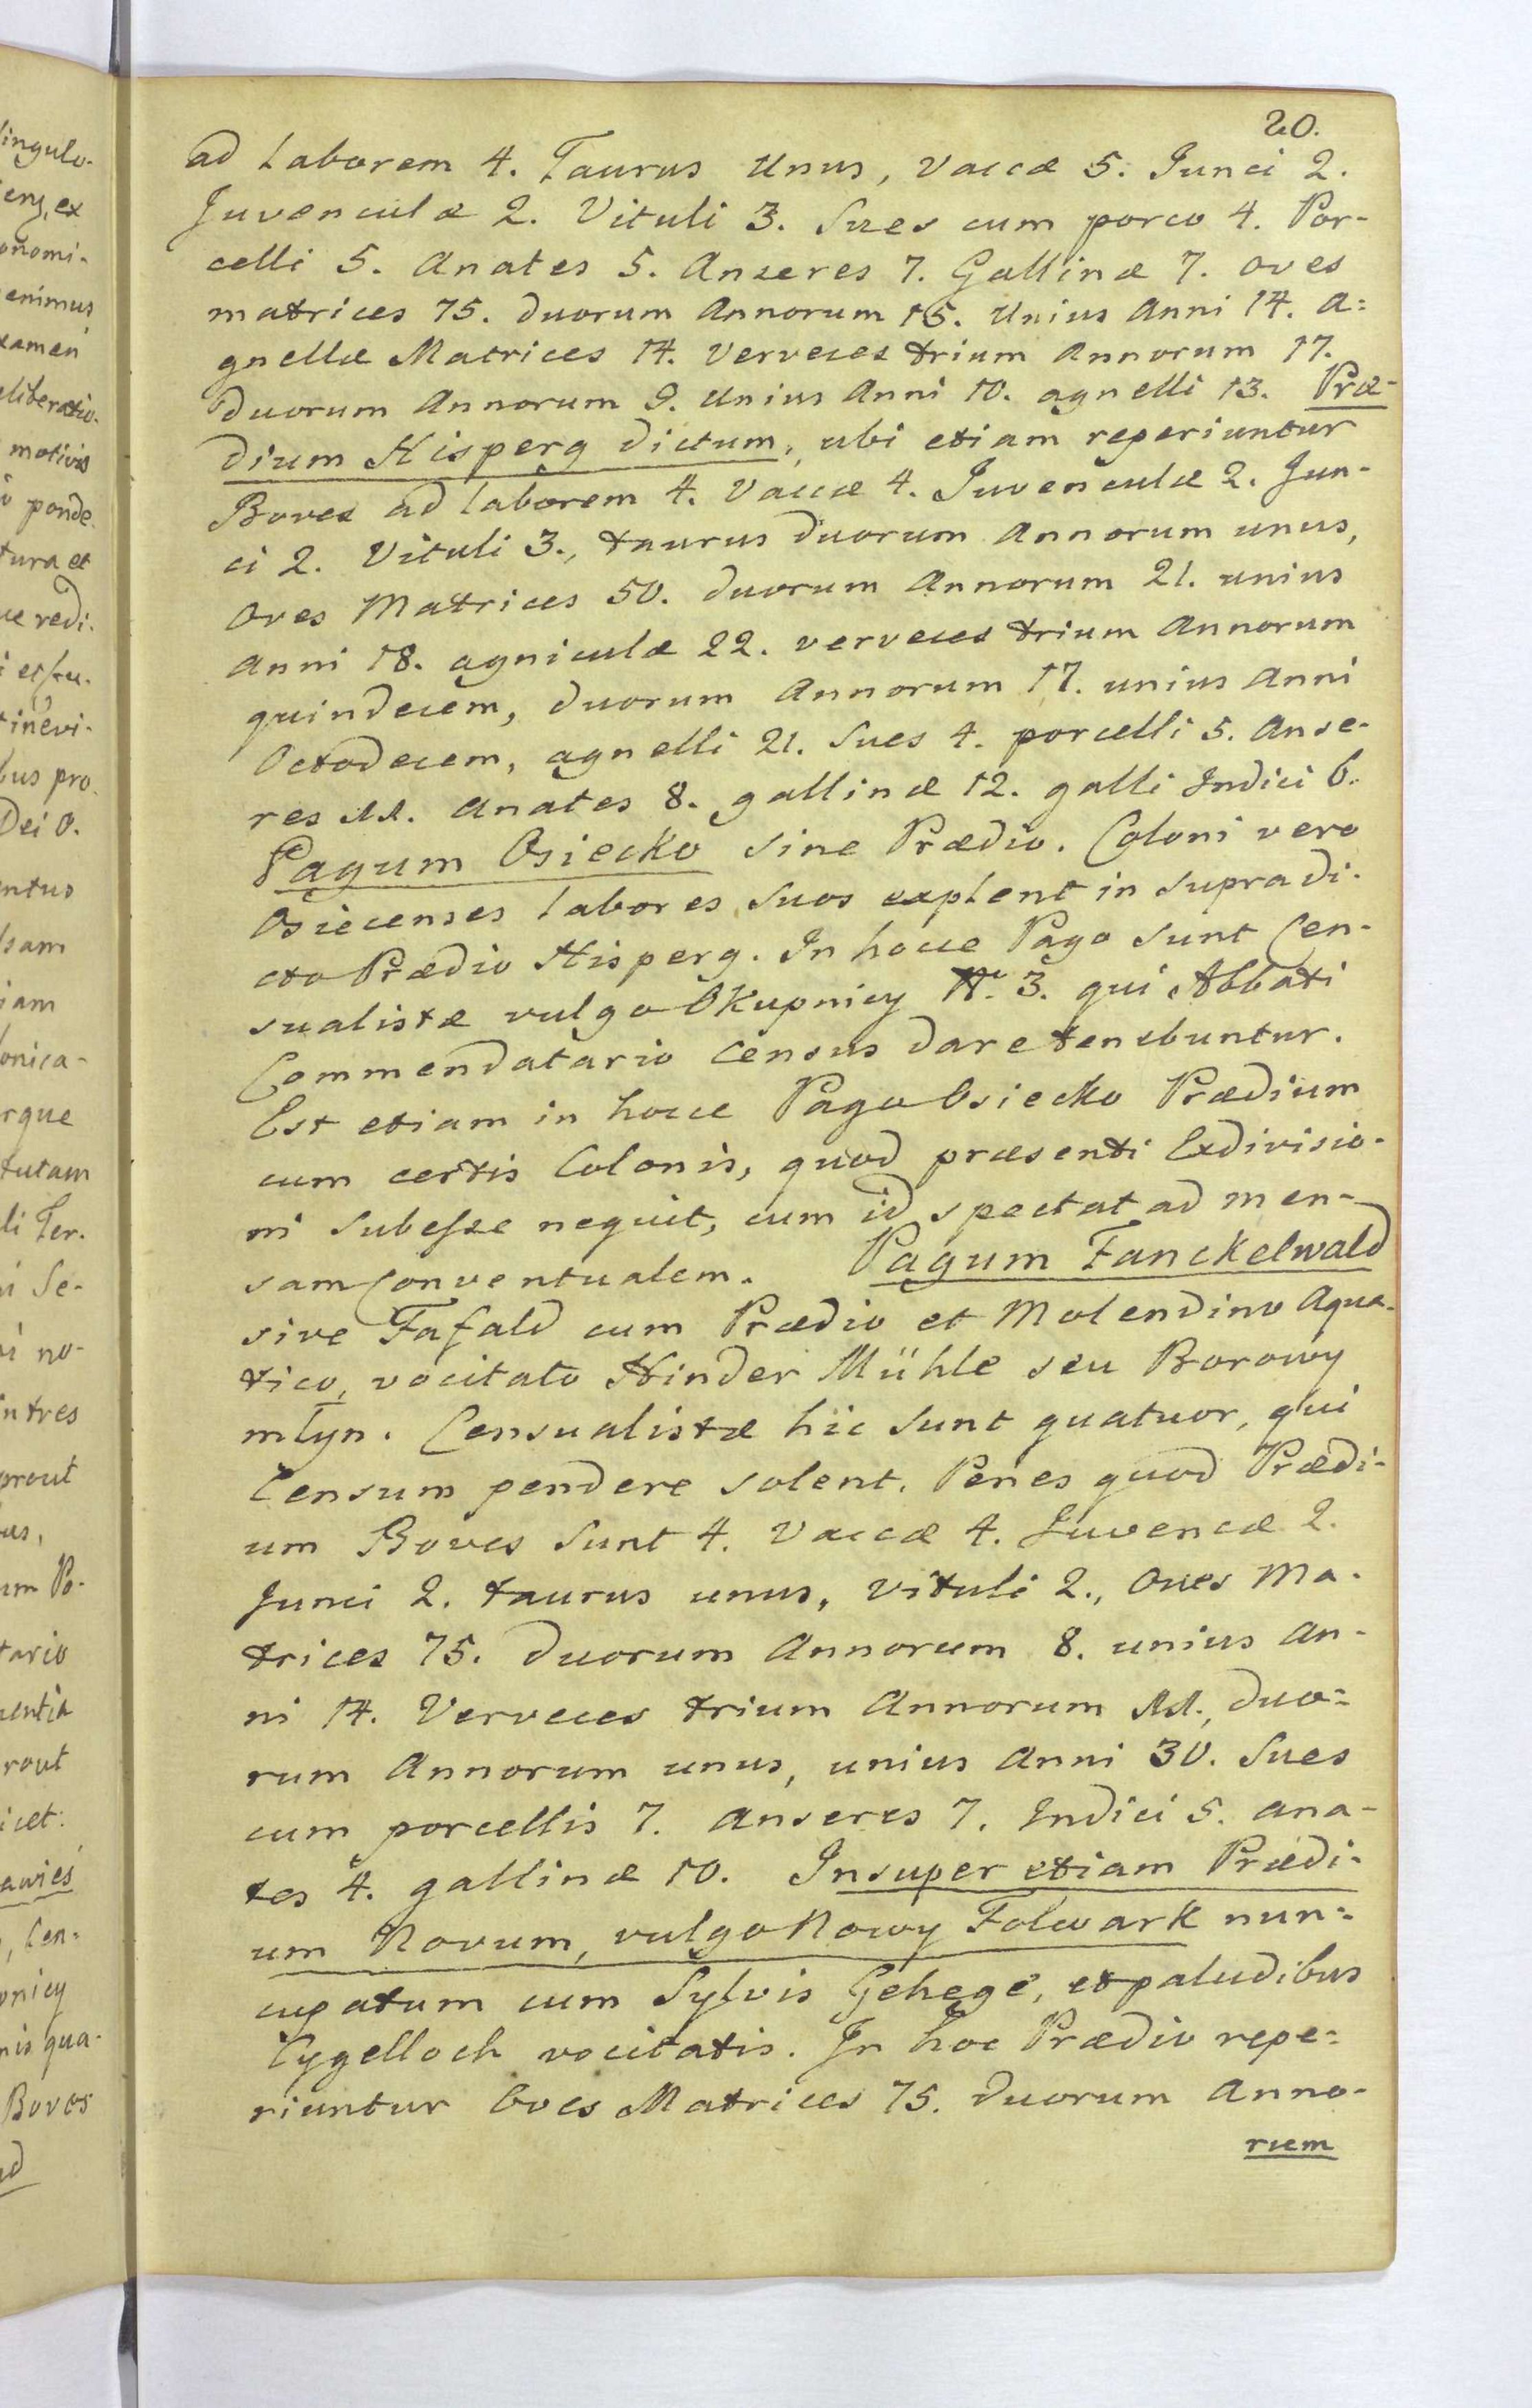 20.
ad Laborem 4. Taurus Unus, Vaccæ 5. Junci 2.
Juvenculæ 2. Vituli 3. Sues cum porco 4. Por-
celli 5. Anates 5. Anseres 7. Gallinæ 7. Oves
matrices 75. duorum Annorum 15. Unius Anni 14. A=
gnellæ Matrices 14. Verveces trium Annorum 17.
duorum Annorum 9. Unius Anni 10. agnelli 13. Præ-
dium Hisperg dictum, ubi etiam reperiuntur
Boves ad laborem 4. Vaccæ 4. Juvenculæ 2. Jun-
ci 2. Vituli 3., taurus duorum Annorum unus,
Oves Matrices 50. duorum Annorum 21. unius
Anni 18. agniculæ 22. verveces trium Annorum
quindecem, duorum Annorum 17. unius Anni
Octodecem, agnelli 21. Sues 4. porcelli 5. Anse-
res 11. Anates 8. gallinæ 12. galli Indici 6.
Pagum Osiecko sine Prædio. Coloni vero
Osiecenses labores suos explent in supra di-
cto Prædio Hisperg. In hocce Pago sunt Cen-
sualistæ vulgo Okupnicy Nr. 3. qui Abbati
Commendatario census dare tenebuntur.
Est etiam in hocce Pago Osiecko Prædium
cum certis Colonis, quod præsenti Exdivisio-
ni subesse nequit, cum id spectat ad men-
sam Conventualem. Pagum Fanckelwald
sive Fafald cum Prædio et Molendino Aqua-
tico, vocitato Hinder Mühle seu Borowy
młyn. Censualistæ hic sunt quatuor, qui
Censum pendere solent. Penes quod Prædi-
um Boves sunt 4. Vaccæ 4. Juvencæ 2.
Junci 2. taurus unus, Vituli 2., Oves Ma-
trices 75. duorum Annorum 8. unius An-
ni 14. Verveces trium Annorum 11., duo=
rum Annorum unus, unius Anni 30. Sues
cum porcellis 7. Anseres 7. Indici 5. ana-
tes 4. gallinæ 10. Insuper etiam Prædi-
um Novum, vulgo Nowy Folwark nun=
cupatum cum Sylvis Gehege, et paludibus
Cygelloch vocitatis. In hoc Prædio repe=
riuntur Oves Matrices 75. duorum Anno-
rum